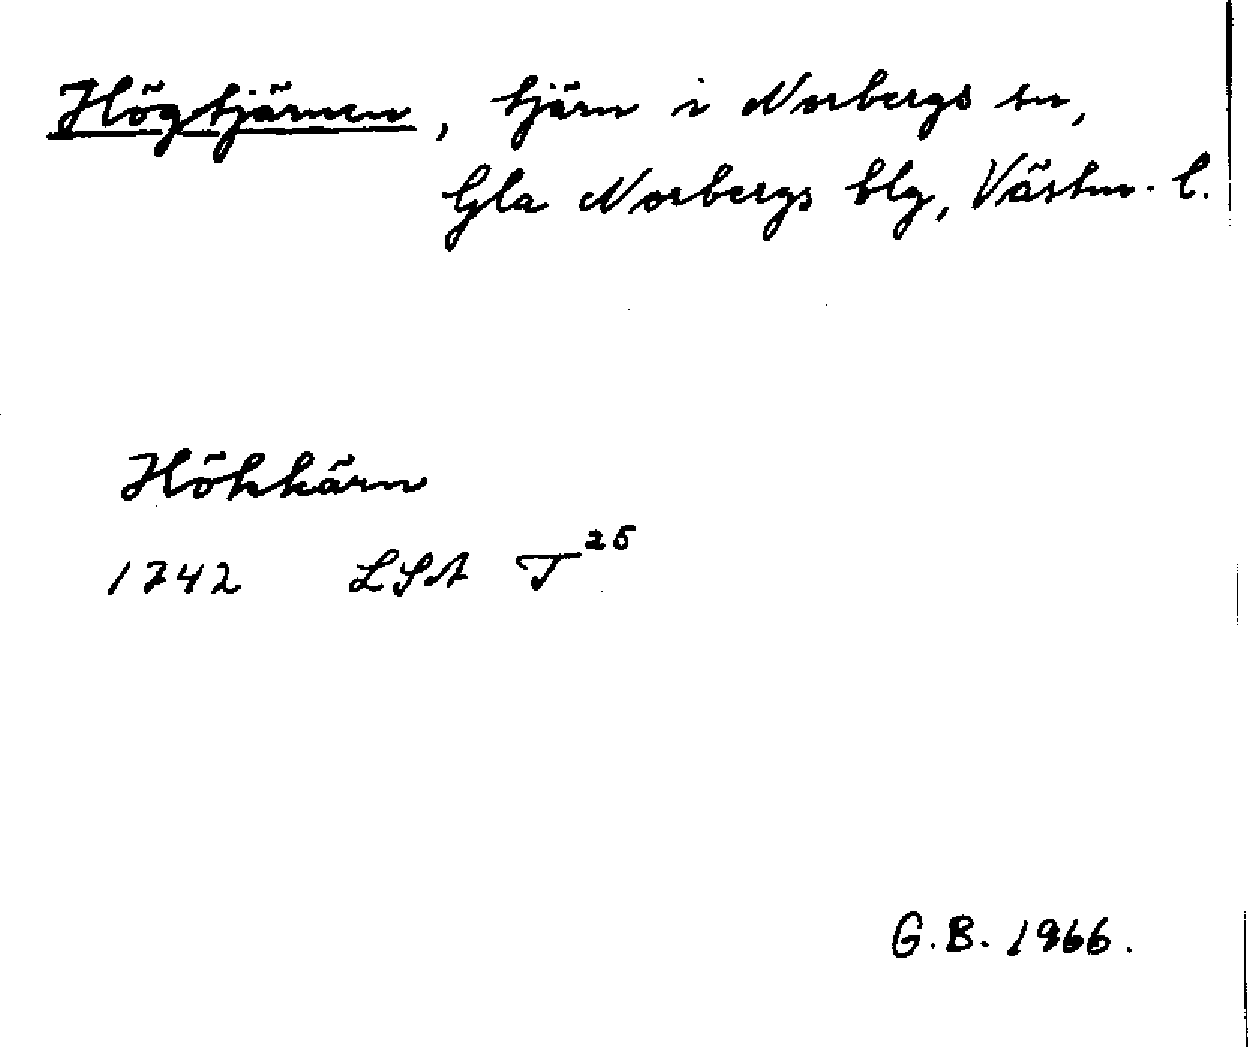 Högtjärnen, tjärn i Norbergs sn,
Gla Norbergs blg, Västm. l.
Hökkärn
1742 LSA T25
G.B. 1966.